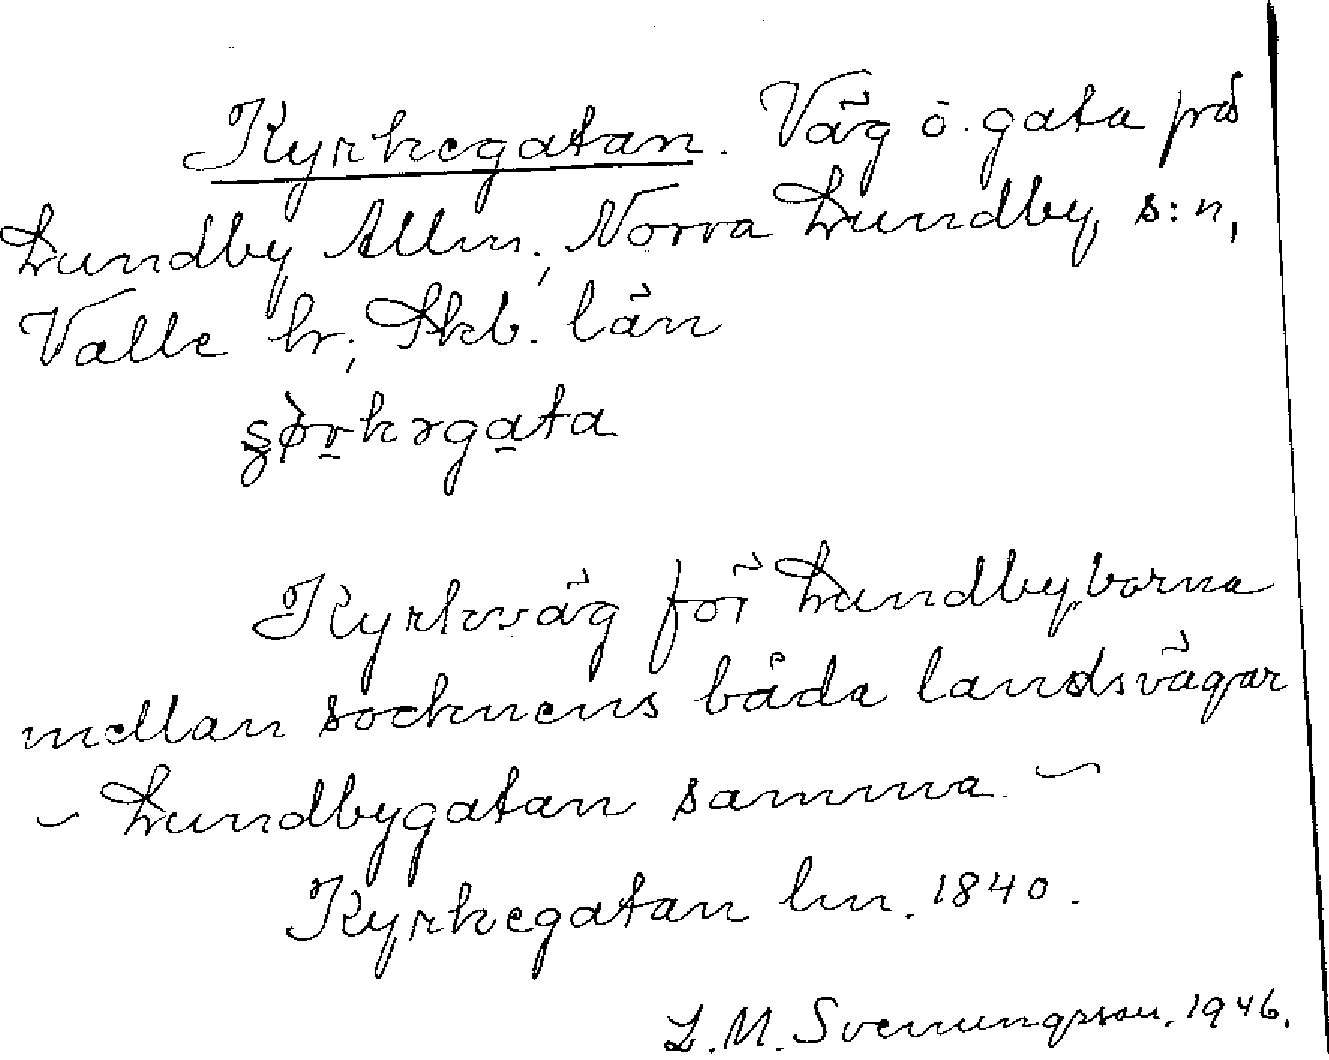 Kyrkegatan. Väg o. gata på
Lundby Allm., Norra Lundby s:n,
Valle hr; Skb. län
Kyrkväg för Lundbyborna
mellan socknens båda landsvägar
~ Lundbygatan samma ~
Kyrkegatan lm. 1840.
L. M. Svenungsson. 1946.